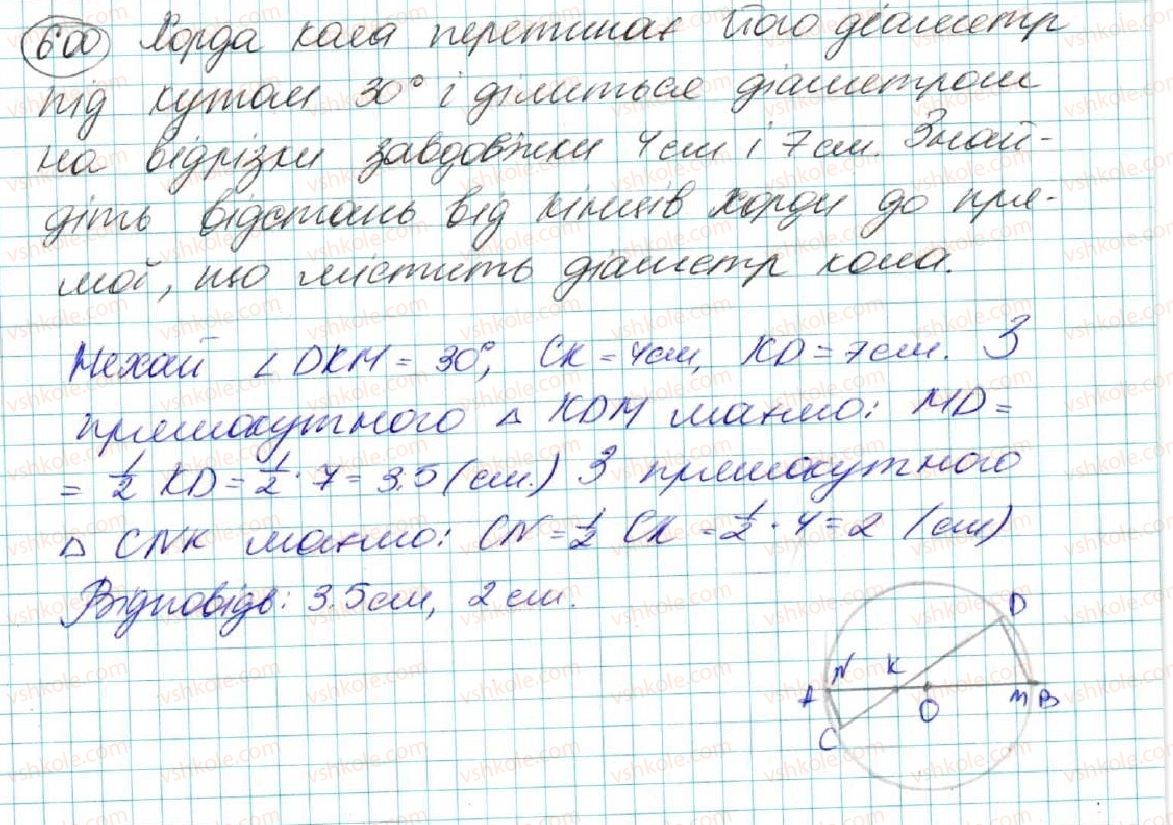 600 Хорда кола перетинає його діаметр
під кутом 30° і ділиться діаметром
на відрізки завдовжки 4 см і 7 см. Знай-
діть відстань від кінців хорди до пря-
мої, що містить діаметр кола.
Нехай ∠DKM = 30°, CK = 4см, KD = 7см. З
прямокутного △ KDM маємо: MD =
= 1/2 KD = 1/2 · 7 = 3.5 (см.) З прямокутного
△ CNK маємо: CN = 1/2 CK = 1/2 · 4 = 2 (см)
Відповідь: 3.5см, 2 см.
D
N K
A O M B
C
vshkole.com